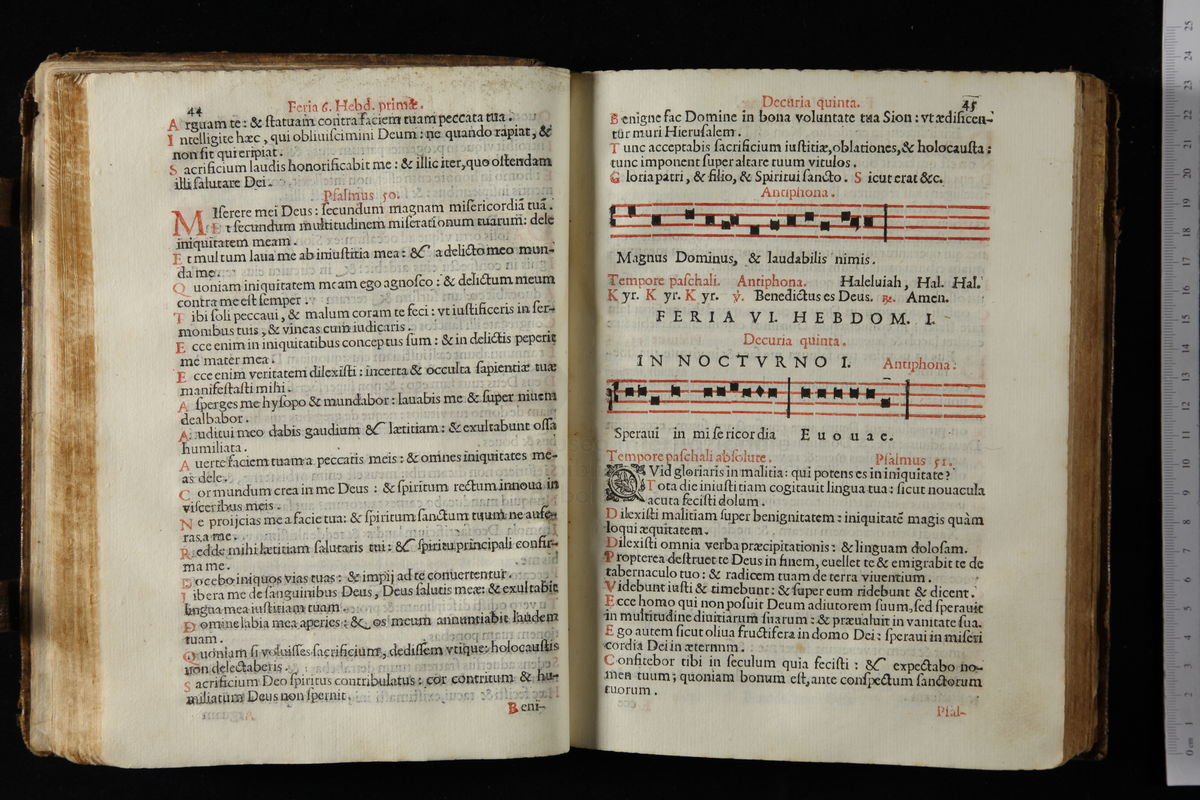 44
Feria 6. Hebd. primæ.
A rguam te: & ſtatuam contra faciem tuam peccata tua.
I ntelligite hæc, qui obliuiſcimini Deum: ne quando rapiat, &
non ſit qui eripiat.
S acrificium laudis honorificabit me: & illic iter, quo oſtendam
illi ſalutare Dei.
Pſalmus 50.
M Iſerere mei Deus: ſecundum magnam miſericordiā tuā.
E t ſecundum multitudinem miſerationum tuarum: dele
iniquitatem meam.
E t multum laua me ab iniuſtitia mea: & a delicto meo mun-
da me.
Q uoniam iniquitatem meam ego agnoſco: & delictum meum
contra me eſt ſemper.
T ibi ſoli peccaui, & malum coram te feci: vt iuſtificeris in ſer-
monibus tuis, & vincas cum iudicaris.
E cce enim in iniquitatibus conceptus ſum: & in delictis peperit
me mater mea.
E cce enim veritatem dilexiſti: incerta & occulta ſapientiæ tuæ
manifeſtaſti mihi.
A ſperges me hyſopo & mundabor: lauabis me & ſuper niuem
dealbabor.
A uditui meo dabis gaudium & lætitiam: & exultabunt oſſa
humiliata.
A uerte faciem tuam a peccatis meis: & omnes iniquitates me-
as dele.
C or mundum crea in me Deus: & ſpiritum rectum innoua in
viſceribus meis.
N e proijcias me a facie tua: & ſpiritum ſanctum tuum ne aufe-
ras a me.
R edde mihi lætitiam ſalutaris tui: & ſpiritu principali confir-
ma me.
D ocebo iniquos vias tuas: & impij ad te conuertentur.
L ibera me de ſanguinibus Deus, Deus ſalutis meæ: & exultabit
lingua mea iuſtitiam tuam.
D omine labia mea aperies: & os meum annuntiabit laudem
tuam.
Q uoniam ſi voluiſſes ſacrificium, dediſſem vtique: holocauſtis
non delectaberis.
S acrificium Deo ſpiritus contribulatus: cor contritum & hu-
miliatum Deus non ſpernit.
Beni-
Decuria quinta.
45
B enigne fac Domine in bona voluntate tua Sion: vt ædificen-
tur muri Hieruſalem.
T unc acceptabis ſacrificium iuſtitiæ, oblationes, & holocauſta:
tunc imponent ſuper altare tuum vitulos.
G loria patri, & filio, & Spiritui ſancto. S icut erat &c.
Antiphona.
Magnus Dominus, & laudabilis nimis.
Tempore paſchali. Antiphona. Haleluiah, Hal. Hal.
K yr. K yr. K yr. ℣. Benedictus es Deus. ℞. Amen.
FERIA VI. HEBDOM. I.
Decuria quinta.
IN NOCTVRNO I. Antiphona.
Speraui in miſericordia Euouae.
Tempore paſchali abſolute. Pſalmus 51.
Q Vid gloriaris in malitia: qui potens es in iniquitate?
T ota die iniuſtitiam cogitauit lingua tua: ſicut nouacula
acuta feciſti dolum.
D ilexiſti malitiam ſuper benignitatem: iniquitatē magis quàm
loqui æquitatem.
D ilexiſti omnia verba præcipitationis: & linguam doloſam.
P ropterea deſtruet te Deus in finem, euellet te & emigrabit te de
tabernaculo tuo: & radicem tuam de terra viuentium.
V idebunt iuſti & timebunt: & ſuper eum ridebunt & dicent.
E cce homo qui non poſuit Deum adiutorem ſuum, ſed ſperauit
in multitudine diuitiarum ſuarum: & præualuit in vanitate ſua.
E go autem ſicut oliua fructifera in domo Dei: ſperaui in miſeri
cordia Dei in æternum.
C onfitebor tibi in ſeculum quia feciſti: & expectabo no-
men tuum; quoniam bonum eſt, ante conſpectum ſanctorum
tuorum.
Pſal-